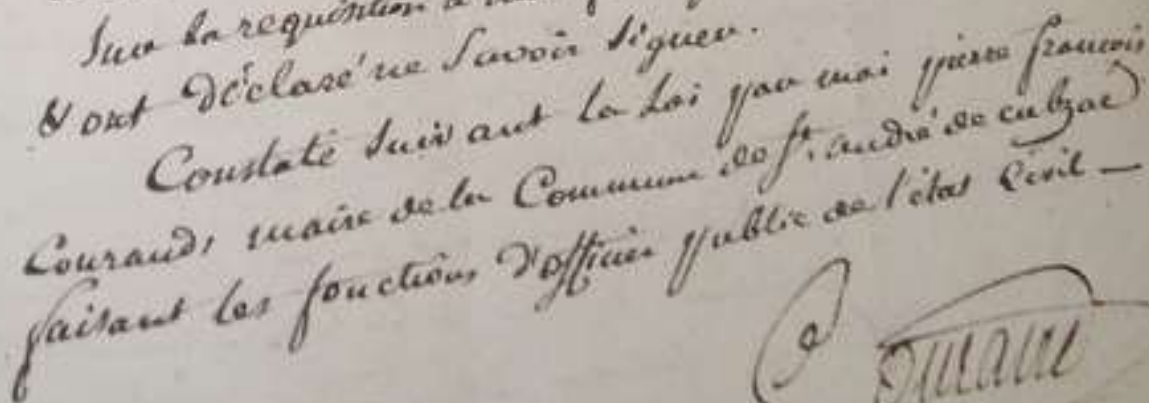 Sur la requisition à
& ont déclaré ne Savoir signer.
Constaté suivant la Loi par moi pierre françois
Couraud, maire de la Commune de St. andré de cubzac
faisant les fonctions d'officier public de l'état Civil —